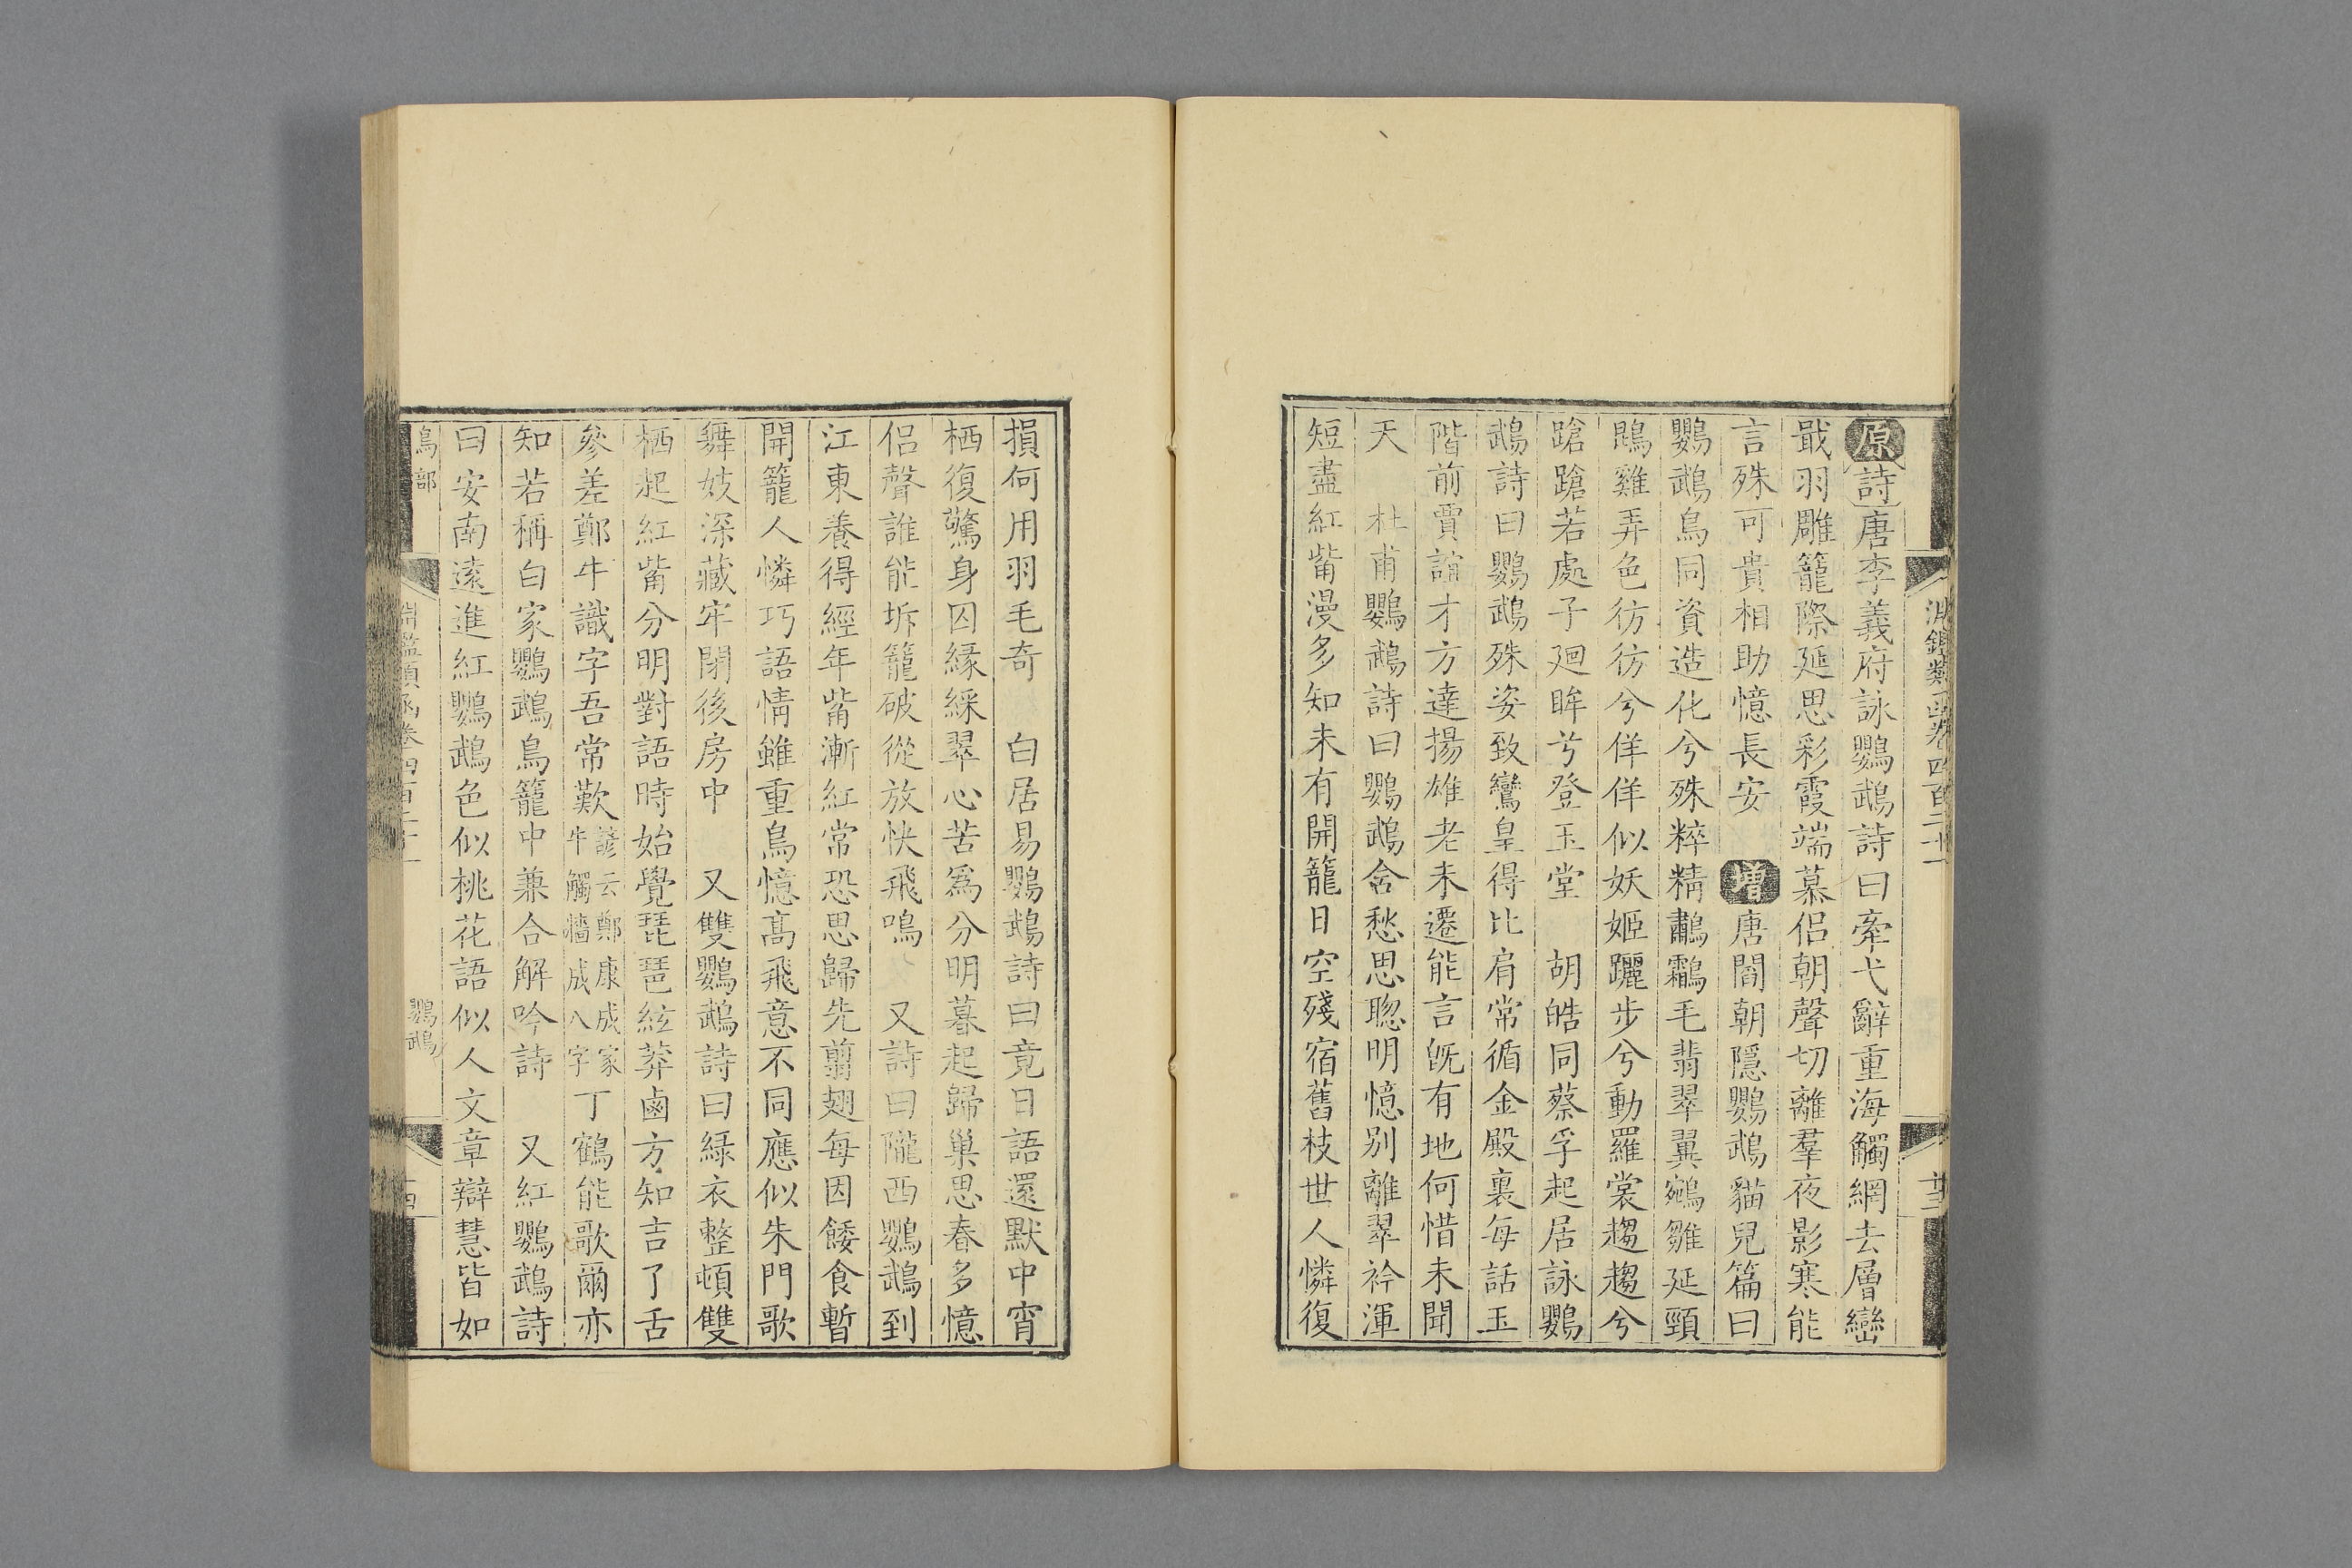 原詩唐李義府詠鸚鵡詩曰牽弋辭重海觸網去層巒
戢羽雕籠際延思彩霞端慕侶朝聲切離羣夜影寒能
言殊可貴相助憶長安 增唐閻朝隱鸚鵡貓兒篇曰
鸚鵡鳥同資造化兮殊粹精鷫鸘毛翡翠翼鵷雛延頸
鵾雞弄色彷彷兮佯佯似妖姬躧步兮動羅裳趨趨兮
蹌蹌若處子迴眸兮登玉堂 胡皓同蔡孚起居詠鸚
鵡詩曰鸚鵡殊姿致鸞皇得比肩常循金殿裏每話玉
階前賈誼才方達揚雄老未遷能言旣有地何惜未聞
天 杜甫鸚鵡詩曰鸚鵡含愁思聦明憶别離翠衿渾
短盡紅觜漫多知未有開籠日空殘宿舊枝世人憐復
損何用羽毛奇 白居易鸚鵡詩曰竟日語還默中宵
栖復驚身囚緣綵翠心苦爲分明暮起歸巢思春多憶
侶聲誰能坼籠破從放快飛鳴 又詩曰隴西鸚鵡到
江東養得經年觜漸紅常恐思歸先翦翅每因餧食暫
開籠人憐巧語情雖重鳥憶高飛意不同應似朱門歌
舞妓深藏牢閉後房中 又雙鸚鵡詩曰綠衣整頓雙
栖起紅觜分明對語時始覺琵琶絃莽鹵方知吉了舌
參差鄭牛識字吾常歎諺云鄭康成家牛觸牆成八字丁鶴能歌爾亦
知若稱白家鸚鵡鳥籠中兼合解吟詩 又紅鸚鵡詩
曰安南遠進紅鸚鵡色似桃花語似人文章辯慧皆如
鳥部
鸚鵡